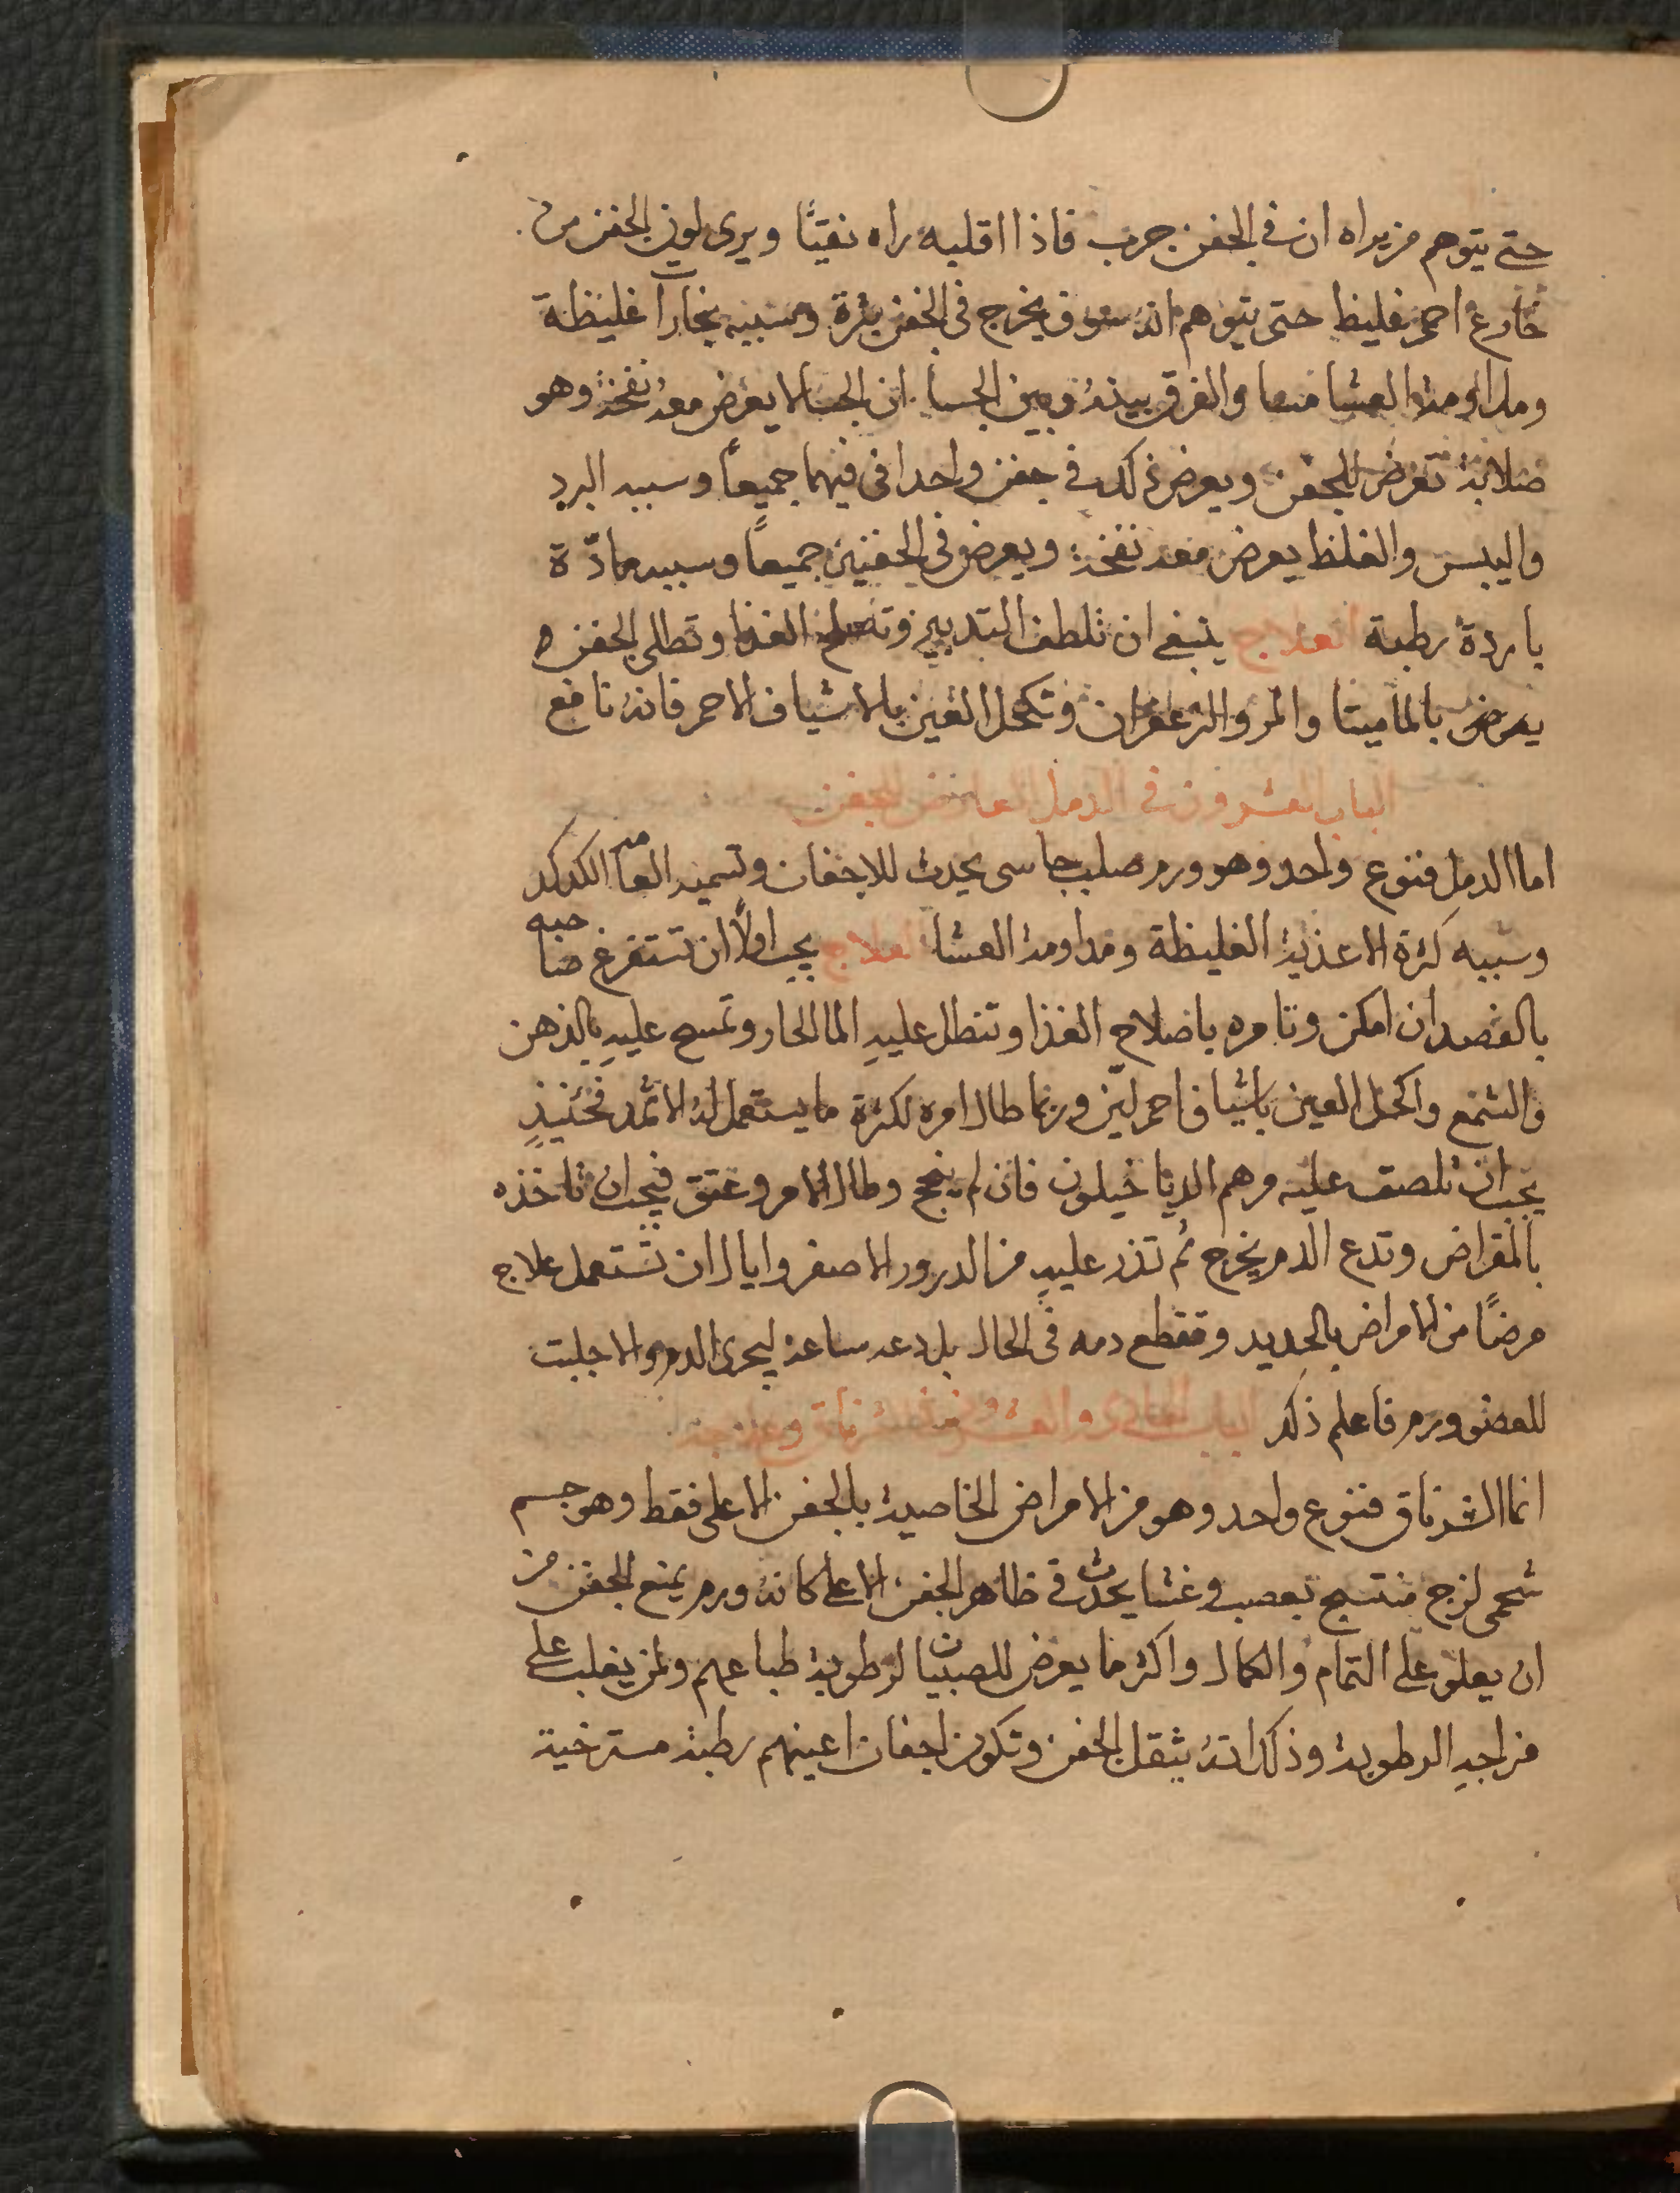 حتى يتوهم من يراه ان في الجفن جرب فاذا اقلبه راه نقيًا ويرى لون الجفن من
خارج احمر غليظ حتى يتوهم انه سوف يخرج في الجفن بثرة وسببه بخارات غليظة
ومداومة العشا منعا والفرق بينه وبين الجسا ان الجسا لا يعرض معه نفخة وهو
صلابة تعرض للجفن ويعرض ذلك في جفن واحد او فيهما جميعًا وسببه البرد
واليبس والغلظ يعرض معه نفخة ويعرض في الجفنين جميعًا وسببه مادّة
باردة رطبة العلاج ينبغي ان تلطف التدبير وتصلح الغذا وتطلى الجفن
يعرض بالماميتا والمر والزعفران وتكحل العين بالاشياف الاحمر فانه نافع
الباب العشرون في الدمل العارض للجفن
اما الدمل فنوع واحد وهو ورم صلب جاسى يحدث للاجفان وتسميه العامه الكدكد
وسببه كثرة الاغذية الغليظة ومداومة العشا العلاج يجب اولاً ان تستفرغ صاحبه
بالفصد ان امكن وتامره باصلاح الغذا وتنطل عليهِ الما الحار وتمسح عليهِ بالدهن
والشمع واكحل العين باشياف احمر ليّن وربما طال امره لكثرة ما يستعمل له الاثمد فحينيذٍ
يجب ان تلصق عليه مرهم الدياخيلون فان لم ينجح وطال الامر وعتق فيجب ان تاخذه
بالمقراض وتدع الدم يخرج ثم تذر عليهِ من الدرور الاصفر واياك ان تستعمل علاج
مرضًا من الامراض بالحديد وتقطع دمه في الحال بل دعه ساعة ليجرى الدم والا جلبت
للعضو ورم فاعلم ذلك الباب الحادى والعشرون في الشرناق وعلاجه
انما الشرناق فنوع واحد وهو من الامراض الخاصية بالجفن الاعلى فقط وهو جسم
شحمى لزج منتسج بعصب وغشا يحدث في ظاهر الجفن الاعلى كانه ورم يمنع الجفن من
ان يعلو على التمام والكمال واكثر ما يعرض للصبيان لرطوبة طباعهم ولمن يغلب على
مزاجهِ الرطوبة وذلك انه يثقل الجفن وتكون اجفان اعينهم رطبة مسترخية